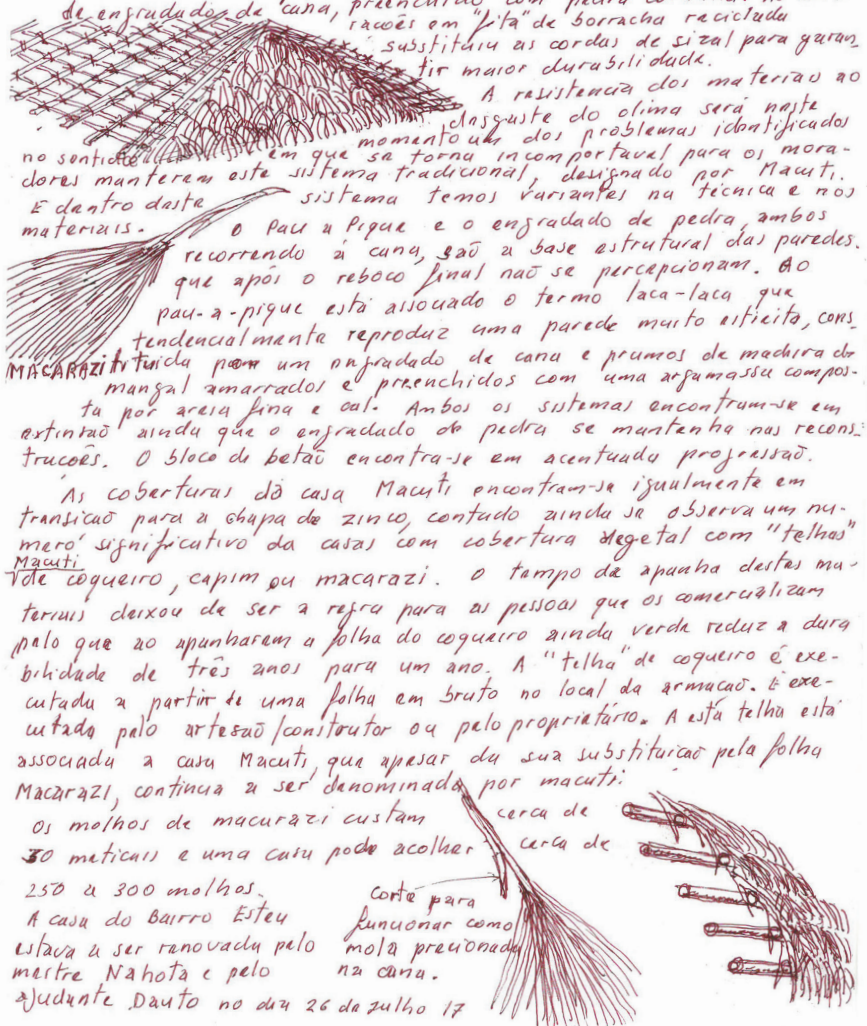 de engradado de cana, preenchido com pedra
racões em "fita" de borracha reciclada
substituiu as cordas de sizal para garan
tir maior durabilidade.
A resistencia dos materiao ao
desgaste do clima será neste
momento um dos problemas identificados
no sentido em que se torna incomportavel para os mora-
dores manterem este sistema tradicional, designado por Macuti.
E dentro deste sistema temos variantes na técnica e nos
materiais. O Pau a Pique e o engradado de pedra, ambos
recorrendo à cana, são a base estrutural das paredes.
que após o reboco final naõ se percepcionam. Ao
pau-a-pique está associado o termo laca-laca que
tendencialmente reproduz uma parede muito estreita, cons-
MACARAZI tituida por um engradado de cana e prumos de madeira de
mangal amarrados e preenchidos com uma argamassa compos-
ta por areia fina e cal. Ambos os sistemas encontram-se em
extinsaõ ainda que o engradado de pedra se mantenha nas recons-
trucoẽs. O bloco de betaõ encontra-se em acentuada progressaõ.
As coberturas dà casa Macuti encontram-se igualmente em
transicaõ para a chapa de zinco, contudo ainda se observa um nu-
mero significativo de casas com cobertura vegetal com "telhas"
Macuti
de coqueiro, capim ou macarazi. O tempo da apanha destes ma-
teriais deixou de ser a regra para as pessoas que os comercializam
pelo que ao apanharem a folha do coqueiro ainda verde reduz a dura
bilidade de três anos para um ano. A "telha" de coqueiro é exe-
cutada a partir de uma folha em bruto no local da armacaõ. É exe-
cutada pelo artesaõ/construtor ou pelo proprietário. A esta telha está
associada a casa Macuti, que apesar da sua substituicaõ pela folha
Macarazi, continua a ser denominada por macuti.
Os molhos de macarazi custam cerca de
30 meticais e uma casa pode acolher cerca de
250 a 300 molhos.
A casa do Bairro Esteu
estava a ser renovada pelo
mestre Nahota e pelo
ajudante Dauto no dia 26 de Julho 17
Corte para
funcionar como
mola precionada
na cana.